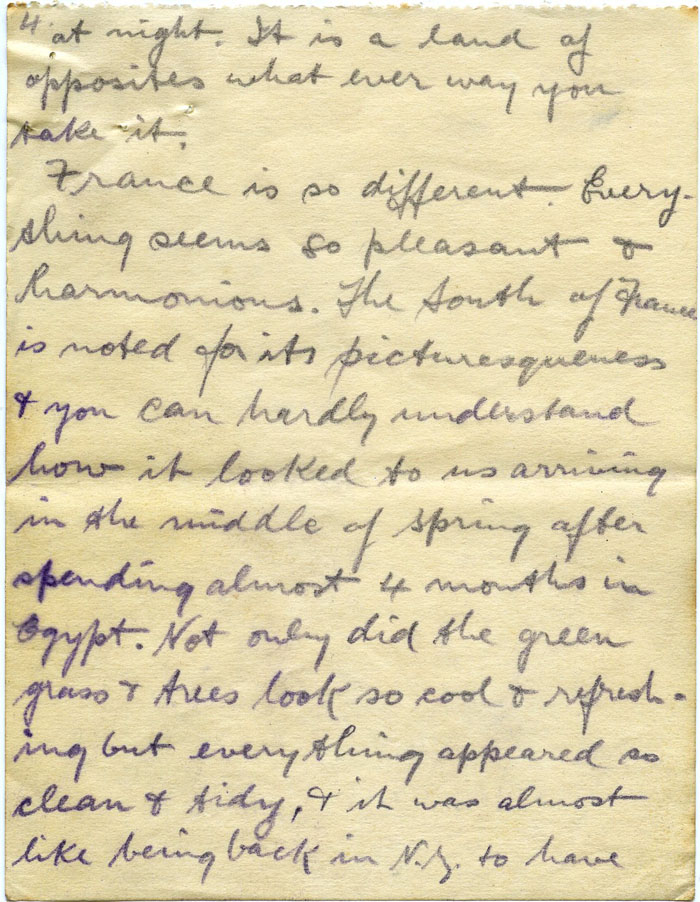 4. at night. It is a land of
opposites what ever way you
take it.
France is so different. Every-
thing seems so pleasant &
harmonious. The South of France
is noted for its picturesqueness
& you can hardly understand
how it looked to us arriving
in the middle of spring after
spending almost 4 months in
Egypt. Not only did the green
grass & trees look so cool & refresh-
ing but everything appeared so
clean & tidy, & it was almost
like being back in N.Z. to have